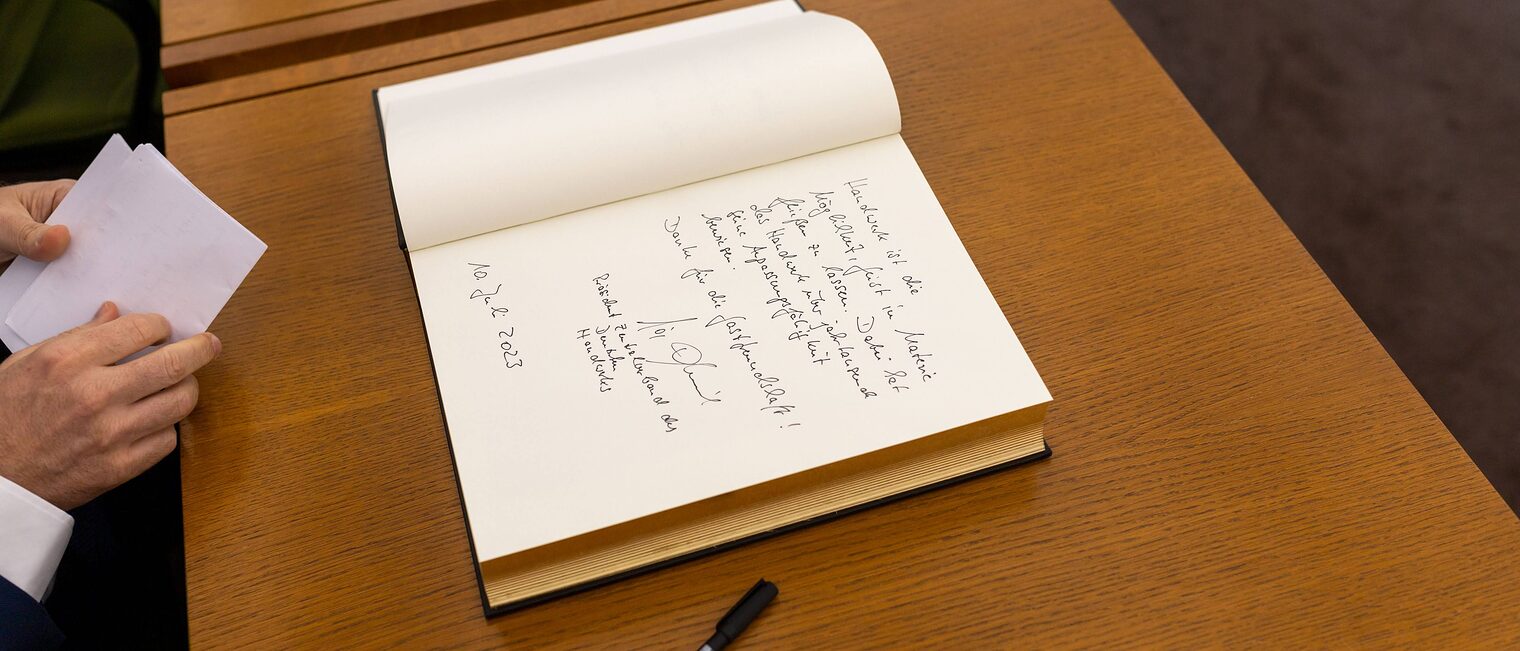 Handwerk ist die Materie
Möglichkeit, Geist in
fließen zu lassen. Dabei hat
das Handwerk über Jahrtausende
seine Anpassungsfähigkeit
bewiesen.
Danke für die Gastfreundschaft!
Präsident Zentralverband des
Deutschen
Handwerks
10. Juli 2023